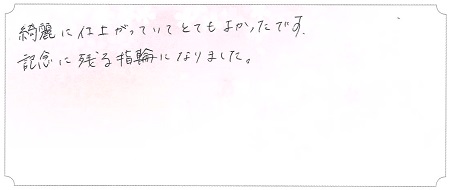 綺麗に仕上がっていてとてもよかったです.
記念に残る指輪になりました。